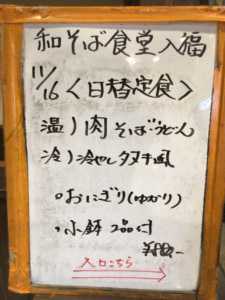 和そば食堂入福
11/16 <日替定食>
温)肉そば・うどん
冷)冷やしタヌキ風
。おにぎり(ゆかり)
。小鉢 2品付
入口こちら